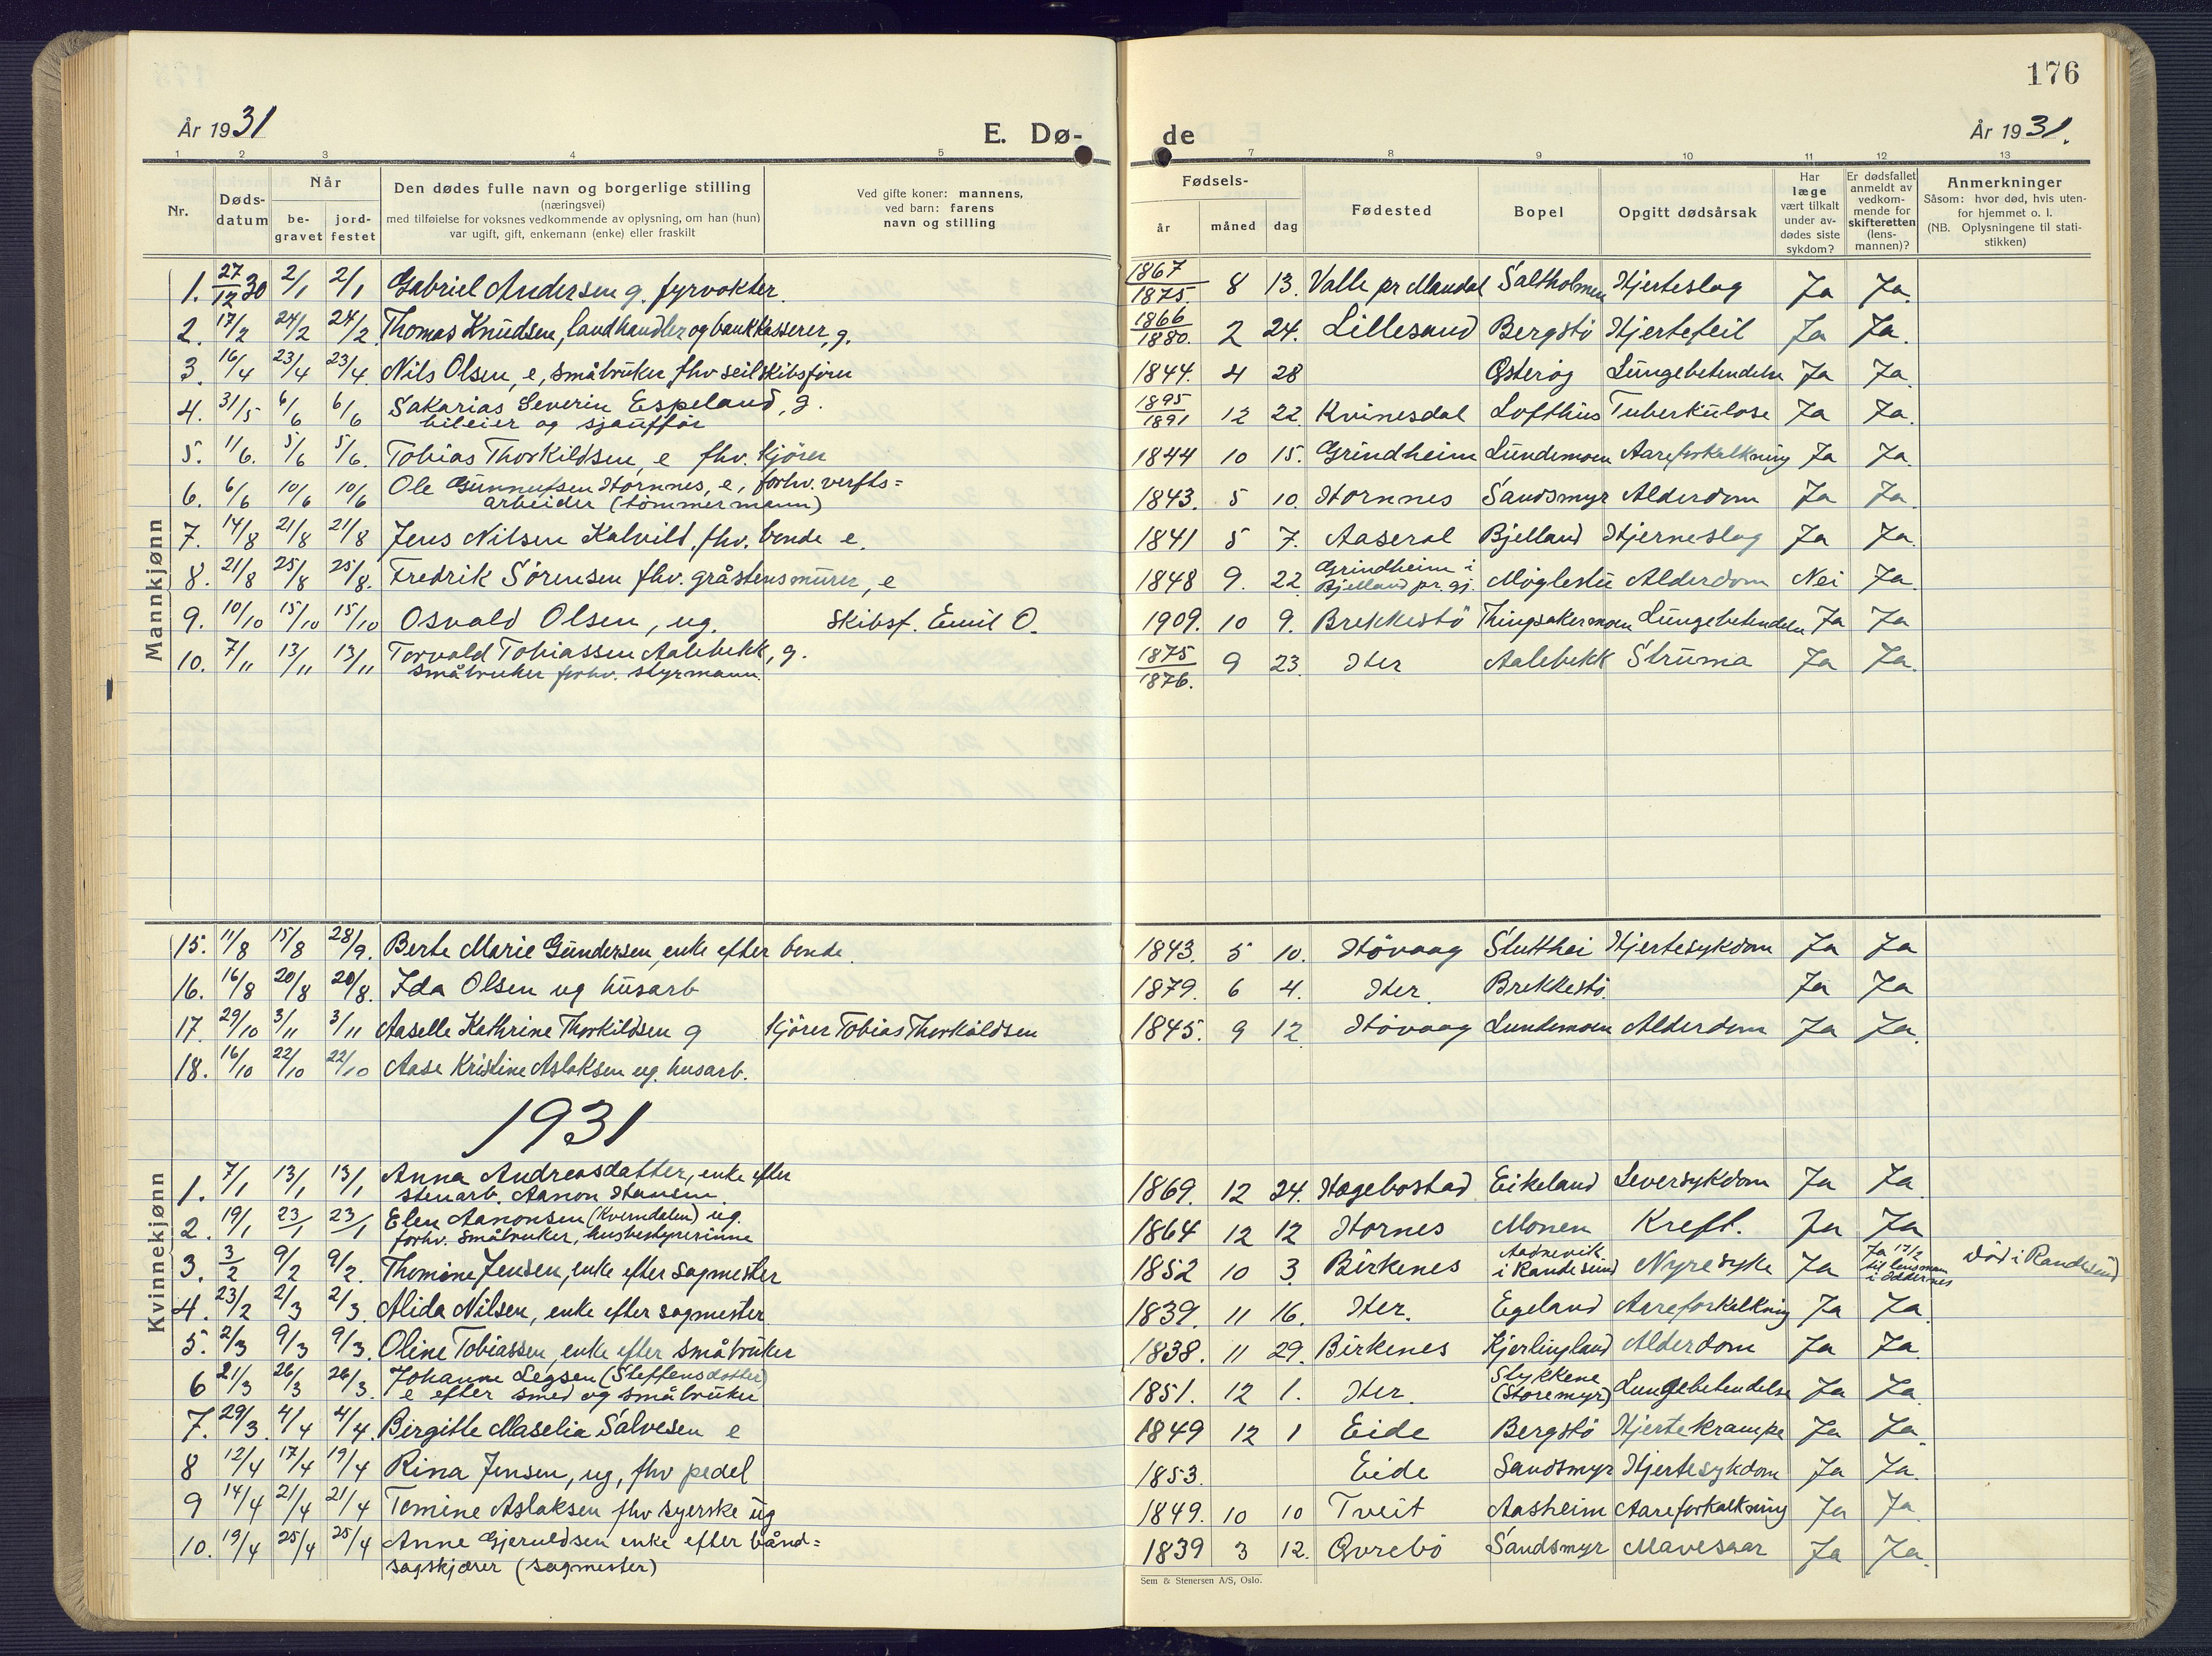 176
År 1931
E. Dø-
de
År 1931.
1 2 3 4 5 7 8 9 10 11 12 13
Nr.
Døds-
datum
Når
be-
gravet
jord-
festet
Den dødes fulle navn og borgerlige stilling
(næringsvei)
med tilføielse for voksnes vedkommende av oplysning, om han (hun)
var ugift, gift, enkemann (enke) eller fraskilt
Ved gifte koner: mannens,
ved barn: farens
navn og stilling
Fødsels-
år måned dag
Fødested
Bopel
Opgitt dødsårsak
Har
læge
vært tilkalt
under av-
dødes siste
sykdom?
Er dødsfallet
anmeldt av
vedkom-
mende for
skifteretten
(lens-
mannen)?
Anmerkninger
Såsom: hvor død, hvis uten-
for hjemmet o. l.
(NB. Oplysningene til stati-
stikken)
Mannkjønn
1. 27/12 30 2/1 2/1 Gabriel Andersen g. fyrvokter. 1867/1875. 8 13. Valle pr Mandal Saltholmen Hjerteslag Ja Ja.
2. 17/2 24/2 24/2 Thomas Knudsen, landhandler og bankkasserer, g. 1866/1880. 2 24. Lillesand Bergstö Hjertefeil Ja Ja.
3. 16/4 23/4 23/4. Nils Olsen, e, småbruker fhv seilskibsförer 1844. 4 28 Osterög Lungebetendelse Ja Ja.
4. 31/5 6/6 6/6 Sakarias Severin Espeland, g.
bileier og sjaufför 1895/1891 12 22. Kvinesdal Lofthus Tuberkulose Ja Ja.
5. 11/6. 5/6 5/6. Tobias Thorkildsen, e fhv. kjörer 1844 10 15. Grindheim Lundemoen Aareforkalkning Ja Ja.
6. 6/6 10/6 10/6 Ole Gunnufsen Hornnes, e, forhv. verfts=
arbeider (tömmermann) 1843. 5 10. Hornnes Sandsmyr Alderdom Ja Ja.
7. 14/8 21/8 21/8 Jens Nilsen Kalvild, fhv. bonde e. 1841 5 7. Aaseral Bjelland Hjerneslag Ja Ja.
8. 21/8 25/8 25/8. Fredrik Sörensen fhv. gråstensmurer, e 1848 9. 22. Grindheim i
Bjelland pr. gj. Möglestu Alderdom Nei Ja.
9. 10/10 15/10 15/10 Osvald Olsen, ug. Skibsf. Emil O. 1909. 10 9. Brekkestö Thingsakermoen Lungebetendelse Ja Ja
10. 7/11 13/11 13/11 Torvald Tobiassen Aalebekk, g.
småbruker forhv. styrmann. 1875/1876. 9 23. Her Aalebekk Struma Ja Ja.
15. 11/8 15/8 28/9. Berte Marie Gundersen, enke efter bonde. 1843. 5 10. Hövaag Slutthei Hjertesykdom Ja Ja
16. 16/8 20/8 20/8. Ida Olsen ug husarb 1879. 6 4. Her. Brekkestö. Ja Ja
17. 29/10 3/11 3/11 Aaselle Kathrine Thorkildsen g kjörer Tobias Thorkildsen 1845. 9 12. Hövaag Lundemoen Alderdom Ja Ja.
18. 16/10 22/10 22/10 Aase Kristine Aslaksen ug. husarb.
1931
Kvinnekjønn
1. 7/1 13/1 13/1 Anna Andreasdatter, enke efter
stenarb. Aanon 1869. 12 24. Hægebostad Eikeland Leversykdom Ja Ja.
2. 19/1 23/1 23/1 Elen Aanonsen (Kverndalen) ug.
forhv. småbruker, husbestyrerinne 1864 12 12 Hornes Monen Kreft. Ja Ja
3. 3/2 9/2 9/2. Thomine Jensen, enke efter sagmester 1852 10 3. Birkenes
i Randesund Nyresyke Ja Ja 17/2
til lensmann
i Oddernes Död i Randesund
4. 23/2 2/3 2/3. Alida Nilsen, enke efter sagmester. 1839. 11 16. Her. Egeland Aareforkalkning Ja Ja.
5. 2/3 9/3 9/3. Oline Tobiassen, enke efter småbruker 1838. 11 29. Birkenes Kjerlingland Alderdom Ja Ja.
6 21/3 26/3 26/3. Johanne Legsen (Steffensdatter)
e efter smed og småbruker 1851. 12 1. Her. Stykkene
(Storemyr) Lungebetendelse Ja Ja.
7. 29/3. 4/4 4/4. Birgitte Maselia Salvesen e 1849 12 1 Eide Bergstö Hjertekrampe Ja Ja.
8 12/4 17/4 19/4 Rina Jensen, ug, fhv pedel 1853. Eide Sandsmyr Hjertesykdom Ja Ja.
9 14/4 21/4 21/4 Tomine Aslaksen fhv syerske ug 1849. 10 10 Tveit Aasheim Aareforkalkning Ja Ja.
10. 19/4 25/4 25/4 Anne Gjeruldsen enke efter bånd=
sagskjærer (sagmester) 1839 3 12. Övrebö Sandsmyr Mavesaar Ja Ja.
Sem & Stenersen A/S, Oslo.